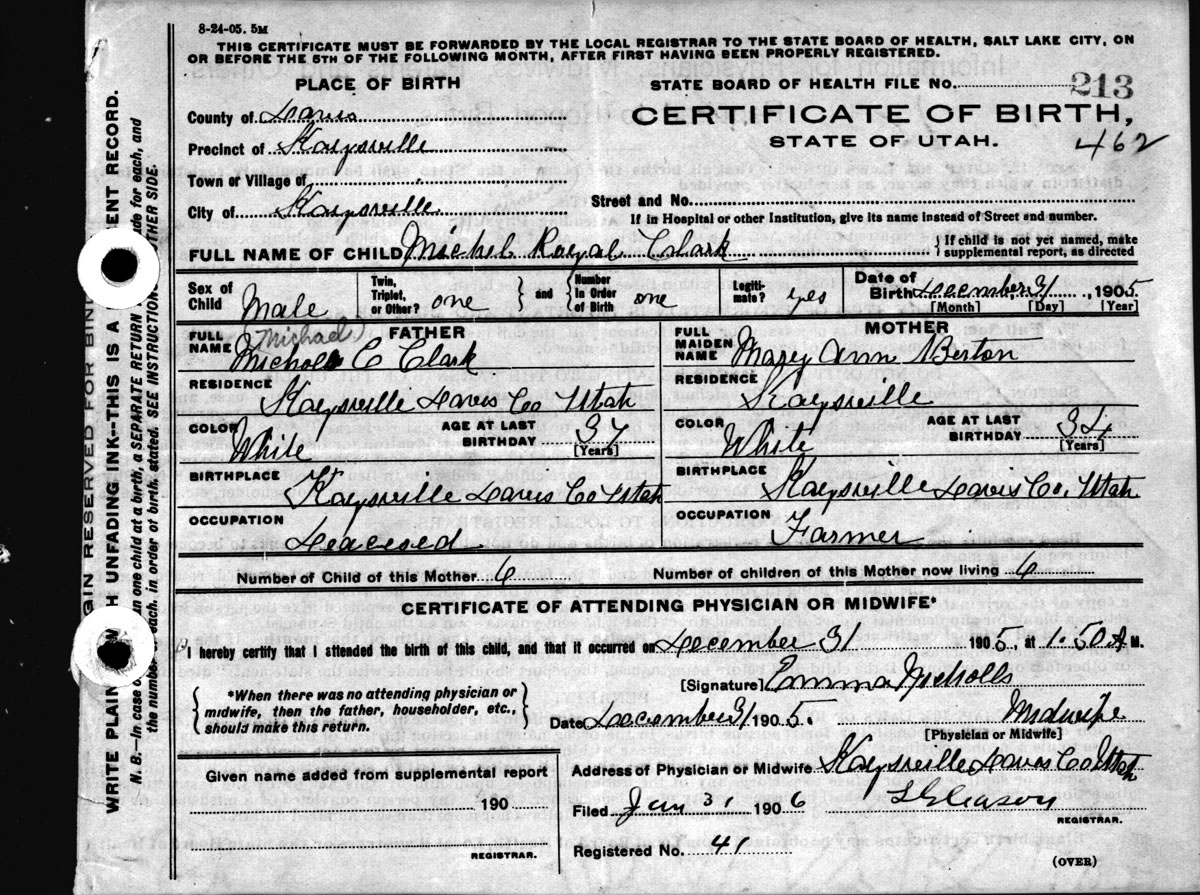 8-24-05. 5M
THIS CERTIFICATE MUST BE FORWARDED BY THE LOCAL REGISTRAR TO THE STATE BOARD OF HEALTH, SALT LAKE CITY, ON
OR BEFORE THE 5TH OF THE FOLLOWING MONTH, AFTER FIRST HAVING BEEN PROPERLY REGISTERED.
PLACE OF BIRTH
STATE BOARD OF HEALTH FILE NO. 213
County of Davis
CERTIFICATE OF BIRTH,
Precinct of Kaysville
STATE OF UTAH.
462
Town or Village of
City of Kaysville
Street and No.
If in Hospital or other Institution, give its name instead of Street and number.
FULL NAME OF CHILD Michel Royal Clark
{If child is not yet named, make
supplemental report, as directed
Sex of Child Male
Twin, Triplet, or Other? one
and
Number in Order of Birth one
Legiti-mate? yes
Date of Birth December 31, 1905
[Month] [Day] [Year]
FATHER
FULL NAME Michel C Clark
Michael
RESIDENCE
Kaysville Davis Co Utah
COLOR White
AGE AT LAST BIRTHDAY 37
[Years]
BIRTHPLACE
Kaysville Davis Co Utah
OCCUPATION
Deacesed
MOTHER
FULL MAIDEN NAME Mary Ann Berton
RESIDENCE
Kaysville
COLOR White
AGE AT LAST BIRTHDAY 34
[Years]
BIRTHPLACE
Kaysville Davis Co, Utah
OCCUPATION
Farmer
Number of Child of this Mother 6
Number of children of this Mother now living 6
CERTIFICATE OF ATTENDING PHYSICIAN OR MIDWIFE*
I hereby certify that I attended the birth of this child, and that it occurred on December 31 1905, at 1.50 A M.
*When there was no attending physician or
midwife, then the father, householder, etc.,
should make this return.
[Signature] Emma Nicholls
Date December 31 1905. Midwife
[Physician or Midwife]
Given name added from supplemental report
190
REGISTRAR.
Address of Physician or Midwife Kaysville Davis Co Utah
Filed Jan 31 1906
L Gleason
REGISTRAR.
Registered No. 41
(OVER)
WRITE PLAIN H UNFADING INK--THIS IS A ENT RECORD.